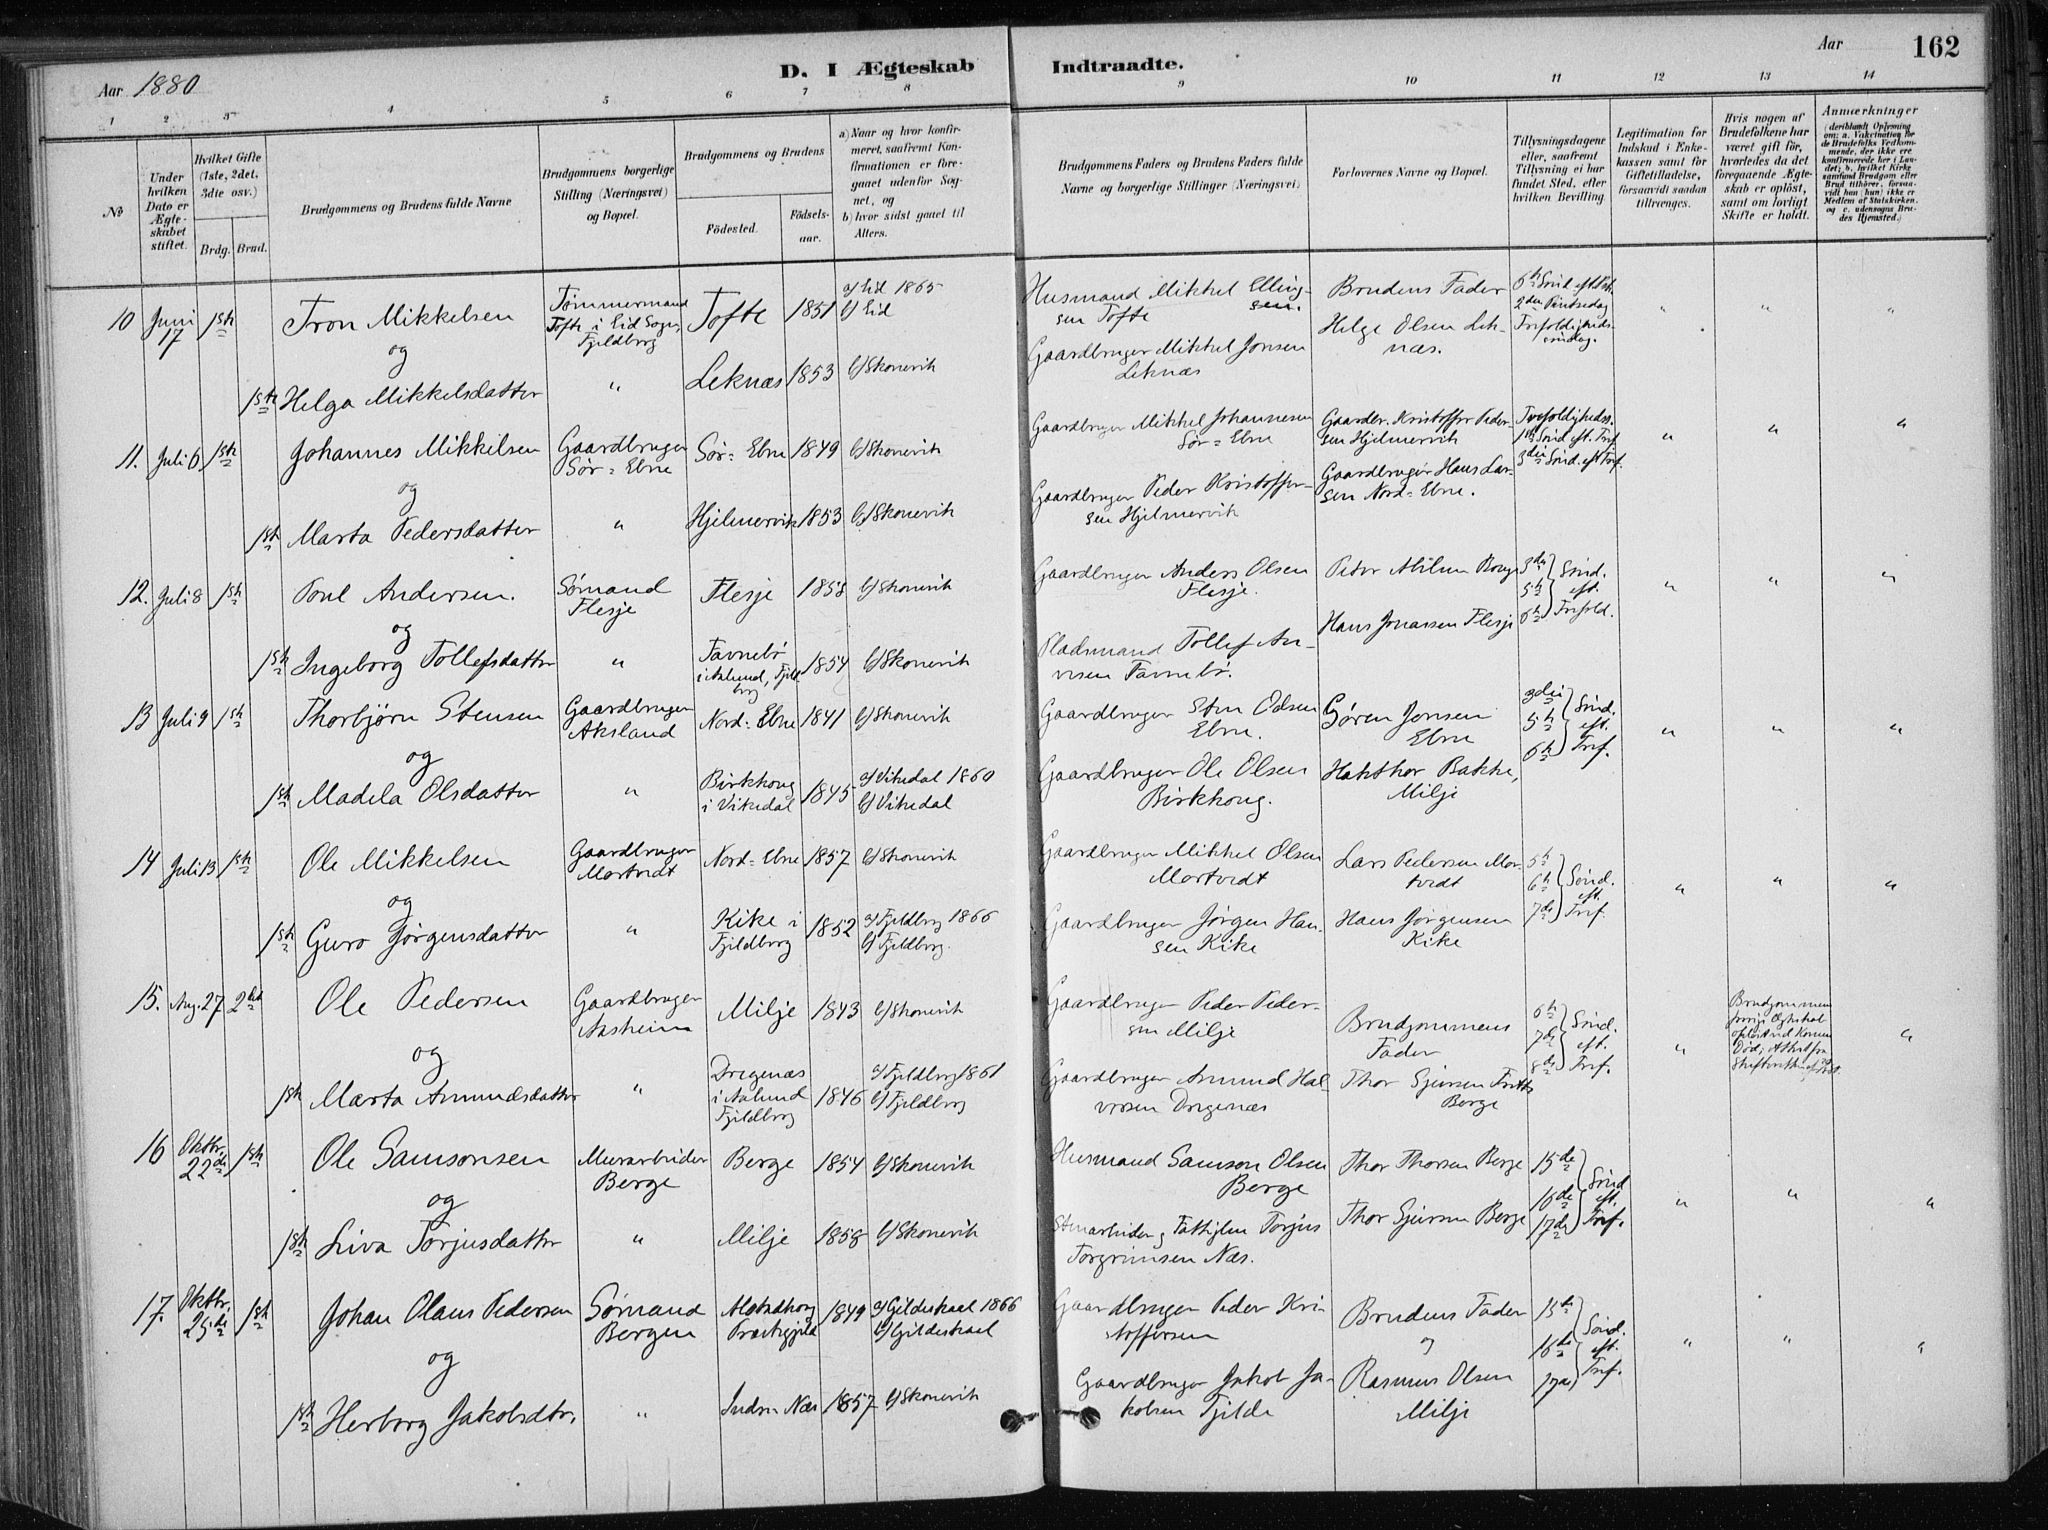 Aar 1880
D. I Ægteskab Indtraadte.
Aar
162
1 2 3 4 5 6 7 8 9 10 11 12 13 14
No
Under hvilken Dato er Ægteskabet stiftet.
Hvilket Gifte (1ste, 2det, 3die osv.)
Brdg. Brud.
Brudgommens og Brudens fulde Navne
Brudgommens borgerlige Stilling (Næringsvei) og Bopæl.
Brudgommens og Brudens
Födested.
Födsels-aar.
a) Naar og hvor konfirmeret, saafremt Konfirmationen er foregaaet udenfor Sognet, og
b) hvor sidst gaaet til Alters.
Brudgommens Faders og Brudens Faders fulde Navne og borgerlige Stillinger (Næringsvei)
Forlovernes Navne og Bopæl.
Tillysningsdagene eller, saafremt Tillysning ei har fundet Sted, efter hvilken Bevilling.
Legitimation for Indskud i Enkekassen samt for Giftetilladelse, forsaavidt saadan tiltrænges.
Hvis nogen af Brudefolkene har været gift för, hvorledes da det foregaaende Ægteskab er oplöst, samt om lovligt Skifte er holdt.
Anmærkninger (deriblandt Oplysning om: a. Vakcination for de Brudefolks Vedkommende, der ikke ere konfirmerede her i Landet; b. hvilket Kirkesamfund Brudgom eller Brud tilhörer, forsaavidt han (hun) ikke er Medlem af Statskirken, og c. udensogns Brudes Hjemsted.)
10 Juni 17 1ste Tron Mikkelsen Tømmermand Tofte i Eid Sogn, Fjeldberg Tofte 1851 a/ Eid 1865 b/ Eid Husmand Mikkel Ellingsen Tofte Brudens Fader
og
1ste Helga Mikkelsdatter " Leknæs 1853 b/ Skonevik Gaardbruger Mikkel Jonsen Leknæs Helge Olsen Leknæs.
11. Juli 6 1ste Johannes Mikkelsen Gaardbruger Sør-Ebne Sør-Ebne 1849 b/ Skonevik Gaardbruger Mikkel Johannesen Sør-Ebne Gaardbr. Kristoffer Pedersen Hjelmervik
og
1ste Marta Pedersdatter " Hjelmervik 1853 b/ Skonevik Gaardbruger Peder Kristoffersen Hjelmervik Gaardbruger Hans Larsen Nord-Ebne.
12. Juli 8 1ste Poul Andersen. Sømand Flesje Flesje 1858 b/ Skonevik Gaardbruger Anders Olsen Flesje. 3die 5te 6te Sönd. eft. Trefold.
og
1ste Ingeborg Tollefsdatter " 1854 b/ Skonevik Hans Jonassen Flesje
13 Juli 9 1ste Thorbjørn Stensen Gaardbruger Aksland Nord-Ebne 1841 b/ Skonevik Gaardbruger Sten Ebne. Søren Jonsen Ebne 3die 5te 6te Sönd. eft. Tref.
og
1ste Madela Olsdatter " Birkhoug i Vikedal 1845 a/ Vikedal 1860 b/ Vikedal Gaardbruger Ole Olsen Birkhoug. Bakke, Milje
14 Juli 13 1ste Ole Mikkelsen Gaardbruger Mortvedt Nord-Ebne 1857 b/ Skonevik Gaardbruger Mikkel Olsen Mortvedt Lars Pedersen Mortvedt 5te 6te 7de Sönd. eft. Tref.
og
1ste Guro Jørgensdatter " Kike i Fjeldberg 1852 a/ Fjeldberg 1866 b/ Fjeldberg. Gaardbruger Jørgen Hansen Kike Hans Jørgensen Kike
15. Aug. 27 2det Ole Pedersen Gaardbruger Aasheim Milje 1843 b/ Skonevik Gaardbruger Peder Pedersen Milje Brudgommens Fader 6te 7de 8de Sönd. eft. Tref.
og
1ste Marta Amundsdatter " i Aalund Fjeldberg 1846 a/ Fjeldberg 1861 b/ Fjeldberg Gaardbruger Amund Halvorsen Thor Sjursen Berge
16 Oktbr. 22de 1ste Ole Samsonsen Murarbeider Berge Berge 1854 b/ Skonevik Husmand Samson Olsen Berge Thor Thorsen Berge 15de 16de 17de Sönd. eft. Tref.
og
1ste Liva Torjusdatter " Milje 1858 b/ Skonevik Torjus Torgrimsen Næs. Thor Sjursen Berge
17. Oktbr. 1ste Johan Olaus Pedersen Sømand Bergen 1849 a/ Gildeskaal 1866 b/ Gildeskaal Gaardbruger Peder Kristoffersen Brudens Fader 15de 16de 17de Sönd. eft. Tref.
og
1ste Herborg Jakobsdtr. " Indre Næs 1857 b/ Skonevik Gaardbruger Jakob Jakobsen Fjelde Rasmus Olsen Milje